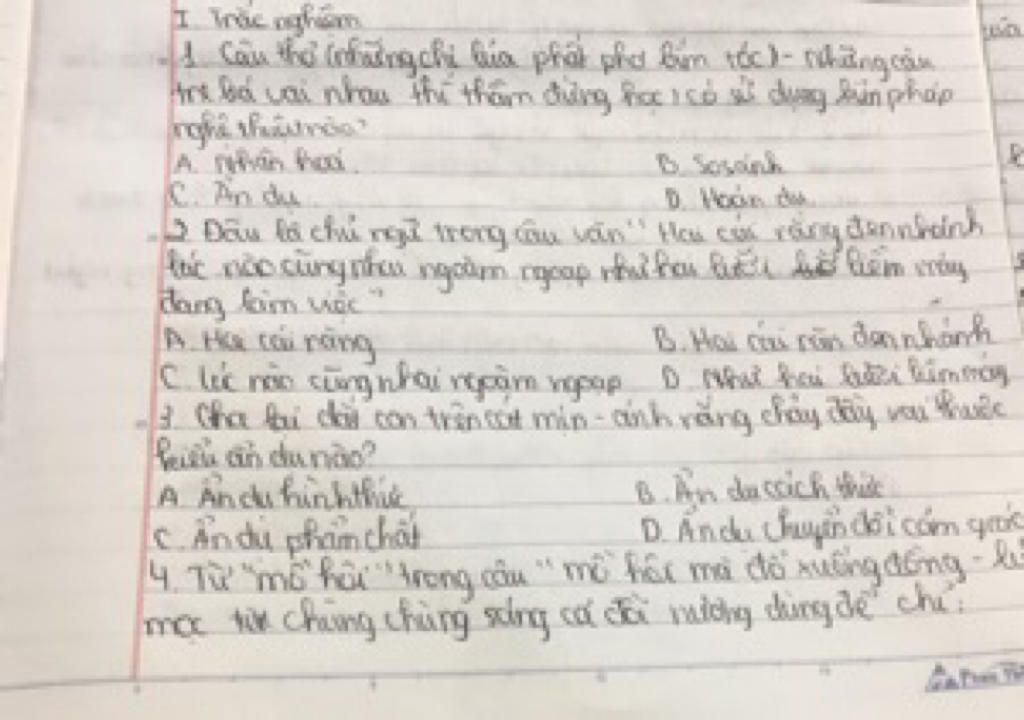 I. Trắc nghiệm
1. Câu thơ (những chị lúa phất phơ bím tóc) - Những cậu
tre bá vai nhau thì thầm đứng học) có sử dụng biện pháp
nghệ thuật nào?
A. Nhân hoá.
B. So sánh
C. Ẩn dụ
D. Hoán dụ
2 Đâu là chủ ngữ trong câu văn "Hai cái răng đen nhánh
lúc nào cũng nhai ngoàm ngoạp như hai lưỡi liềm máy
đang làm việc"
A. Hai cái răng
B. Hai cái răn đen nhánh
C. lúc nào cũng nhai ngoàm ngoạp
D. Như hai lưỡi liềm máy
3 Cha lại dắt con trên cát mịn - ánh nắng chảy đầy vai thuộc
kiểu ẩn dụ nào?
A. Ẩn dụ hình thức
B. Ẩn dụ cách thức
C. Ẩn dụ phẩm chất
D. Ẩn dụ chuyển đổi cảm giác
4. Từ "mồ hôi" trong câu "mồ hôi mà đổ xuống đồng -
mọc trùng trùng sáng cả đồi nương dùng để chỉ: